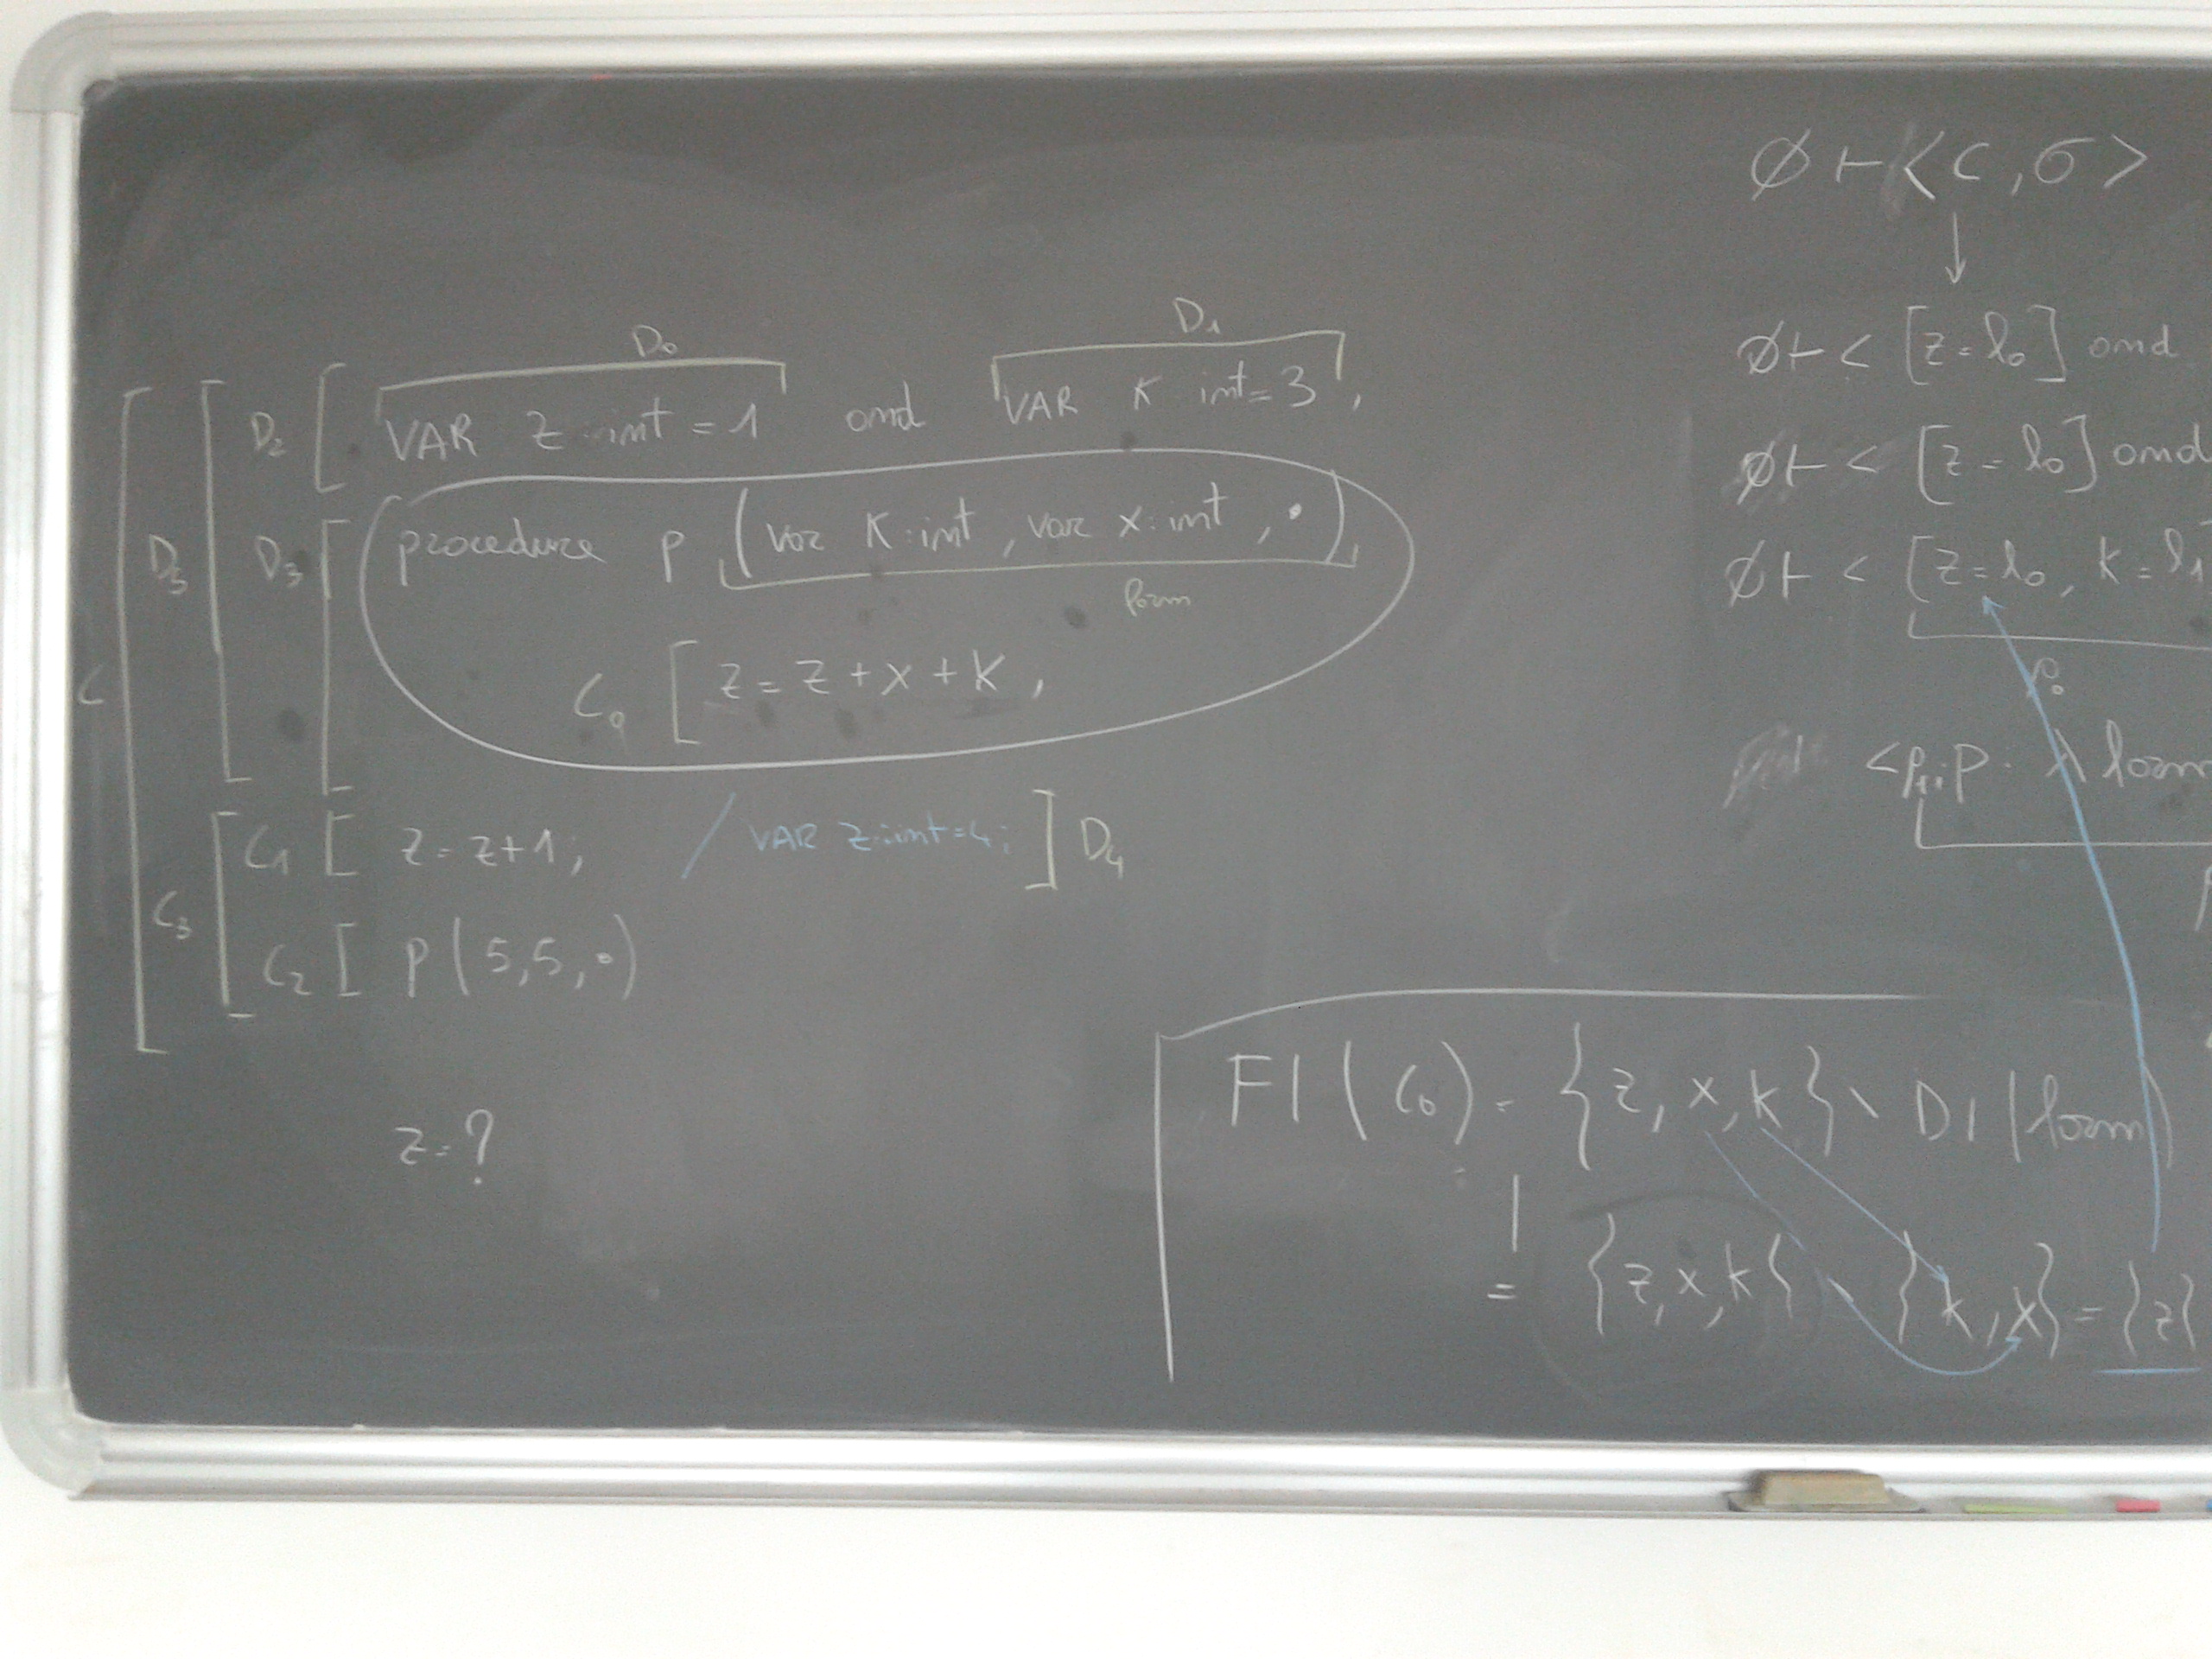 D₀ D₁
D₂ [ VAR z:int = 1 and VAR K:int = 3 ,
C [ D₅ [ D₃ [ procedure P (var K:int , var x:int , •)
form
C₀ [ z = z + x + k ,
C₁ [ z = z+1 ; / VAR z:int=4; ] D₄
C₃ [ C₂ [ P(5,5,•)
z = ?
∅ ⊢ <C, σ>
↓
∅ ⊢ < [z=l₀] and
∅ ⊢ < [z = l₀] and
∅ ⊢ < [z = l₀, k = l₁
ρ₀
λ form
FI (C₀) = {z, x, k} \ DI (form)
= {z, x, k} \ {k, x} = {z}